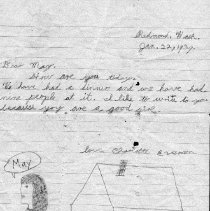 Redmond, Wash.
Jan. 22, 1924.
Dear May.
How are you today.
We have had a dinner and we have had
nine people at it. I like to write to you
because you are a good girl.
love Charlotte
May